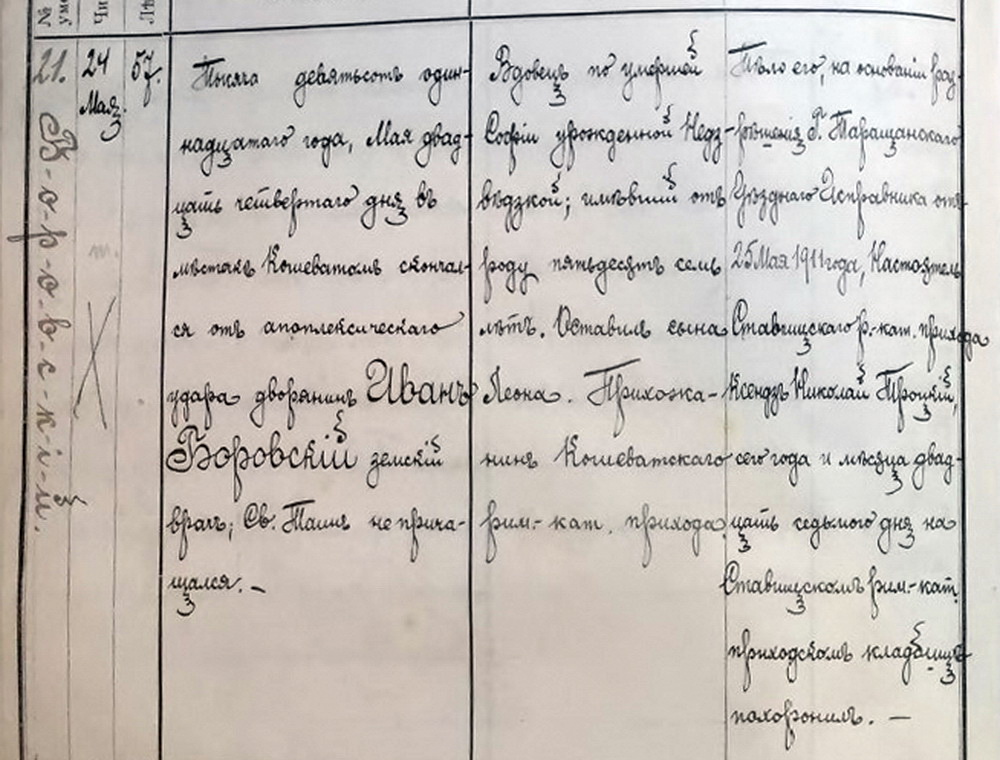 №
уме
Чи
Лѣ
21.
24
Мая.
57.
Б-о-р-о-в-с-к-і-й.
Тысяча девятьсотъ один-
надцатаго года, Мая двад-
цать четвертаго дня въ
мѣстакѣ Кошеватомъ скончал-
ся отъ апоплексическаго
удара дворянинъ Иванъ
Боровскій земскій
врачъ; Св. Таинъ не прича-
щался. —
Вдовецъ по умершей
Софіи урожденной Недз-
вѣдзкой; имѣвшій отъ
роду пятьдесятъ семь
лѣтъ. Оставилъ сына
Леона. Прихожа-
нинъ Кошеватскаго
рим.-кат. прихода.
Тѣло его, на основаніи раз-
рѣшенія Г. Таращанскаго
Уѣзднаго Исправника отъ
25 Мая 1911 года, Настоятель
Ставищскаго р.-кат. прихода
Ксендзъ Николай Троцкій,
сего года и мѣсяца двад-
цать седьмого дня на
Ставищскомъ рим.-кат.
приходскомъ кладбищѣ
похоронилъ. —